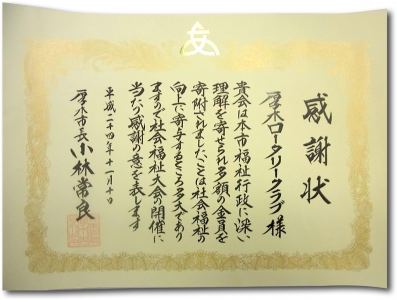 感謝状
厚木ロータリークラブ様
貴会は本市福祉行政に深い
理解を寄せられ多額の金員を
寄附されましたことは社会福祉の
向上に寄与するところ多大であり
ますので社会福祉大会の開催に
当たり感謝の意を表します
平成二十四年十一月十日
厚木市長小林常良